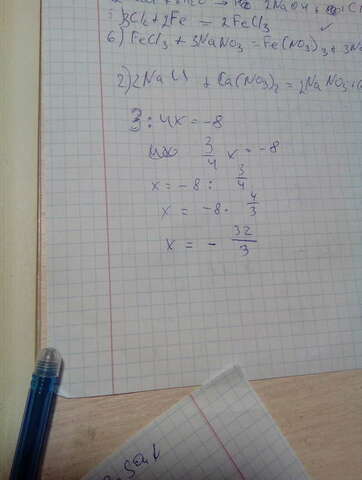 2NaOH +
3Cl₂ + 2Fe = 2FeCl₃
6) FeCl₃ + 3NaNO₃ = Fe(NO₃)₃ + 3Na
2) 2Na + Ca(NO₃)₂ = 2NaNO₃ +
3 : 4x = -8
3/4 x = -8
x = -8 : 3/4
x = -8 · 4/3
x = - 32/3